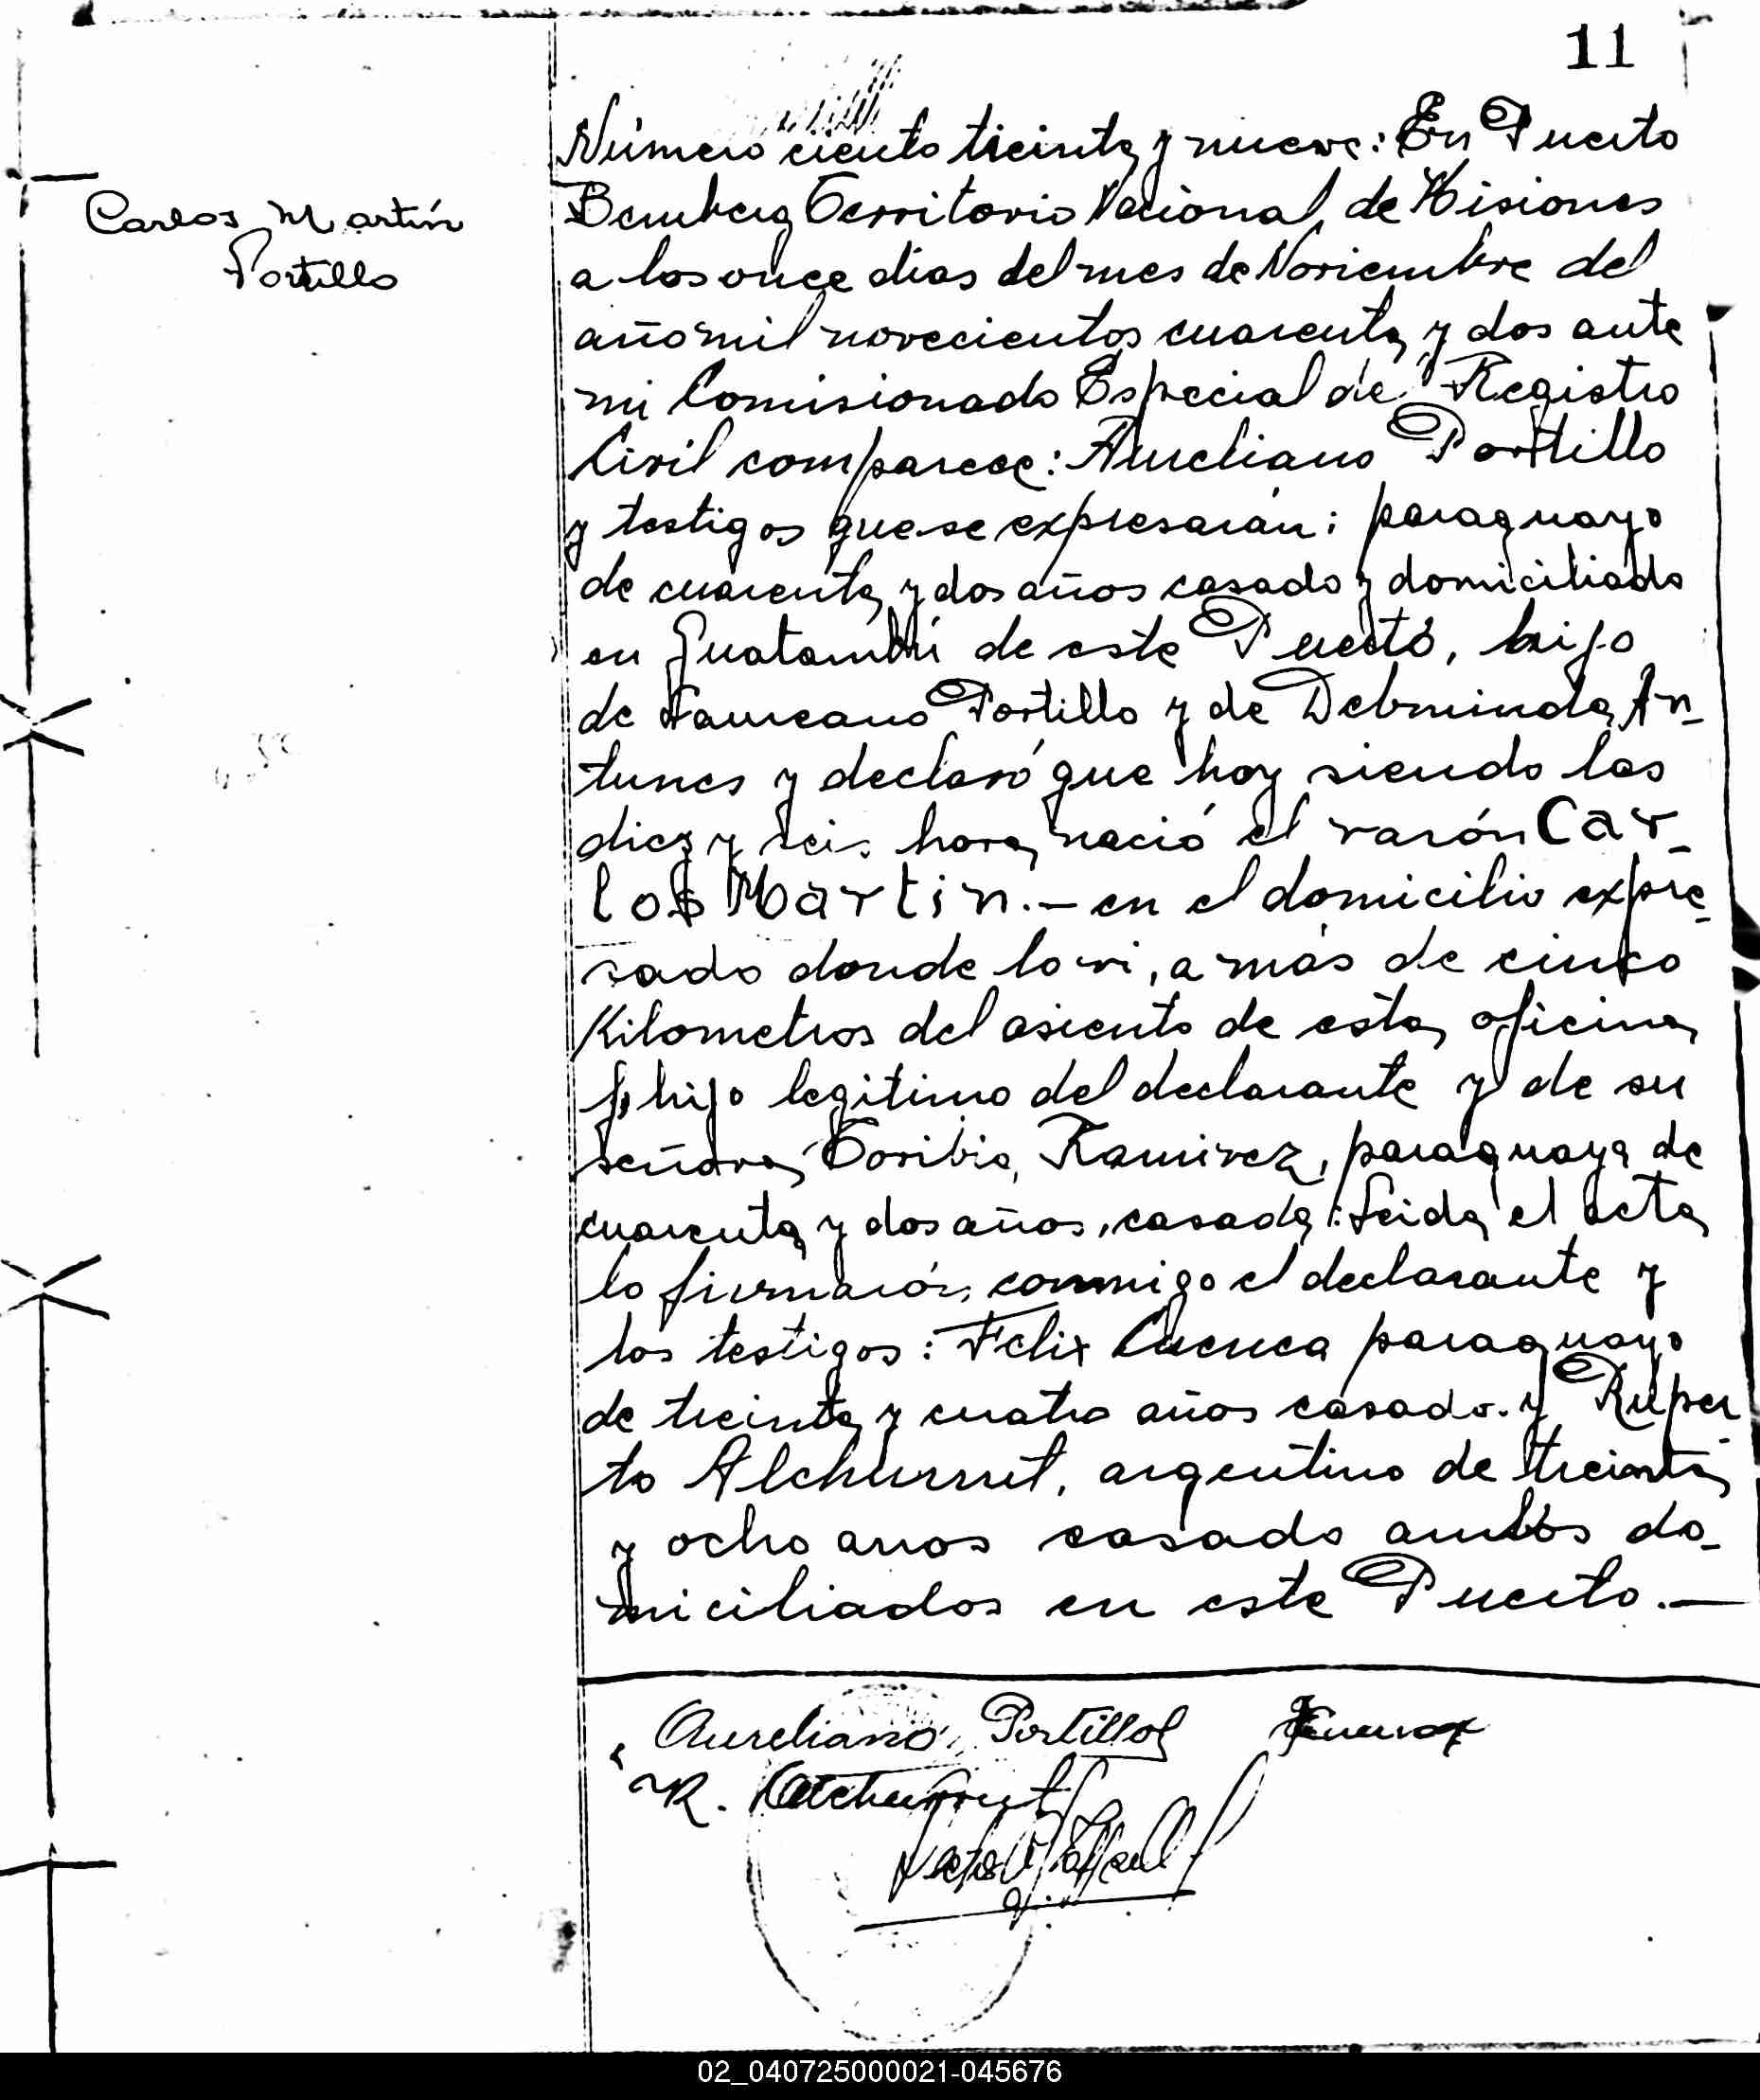 11
Carlos Martín
Portillo
Número ciento treinta y nueve: En Puerto
Bemberg Territorio Nacional de Misiones
a los once dias del mes de Noviembre del
año mil novecientos cuarenta y dos ante
mi Comisionado Especial de Registro
Civil comparece: Aureliano Portillo
y testigos que se expresarán: paraguayo
de cuarenta y dos años casado y domiciliado
en Guatambú de este Puerto, hijo
de Laureano Portillo y de Debminda An-
tunes y declaró que hoy siendo las
diez y seis hora nació el varón Car-
los Martin.- en el domicilio expre-
sado donde lo vi, a más de cinco
Kilometros del asiento de esta oficina
hijo legitimo del declarante y de su
señora Toribia Ramirez, paraguaya de
cuarenta y dos años, casada: Leida el acta
la firmarón, conmigo el declarante y
los testigos: Felix Cuenca paraguayo
de treinta y cuatro años casado. y Ruper
to Alchurrut, argentino de treinta
y ocho anos casado ambos do-
miciliados en este Puerto.-
Aureliano Portillo
R. Alchurrut
02_040725000021-045676